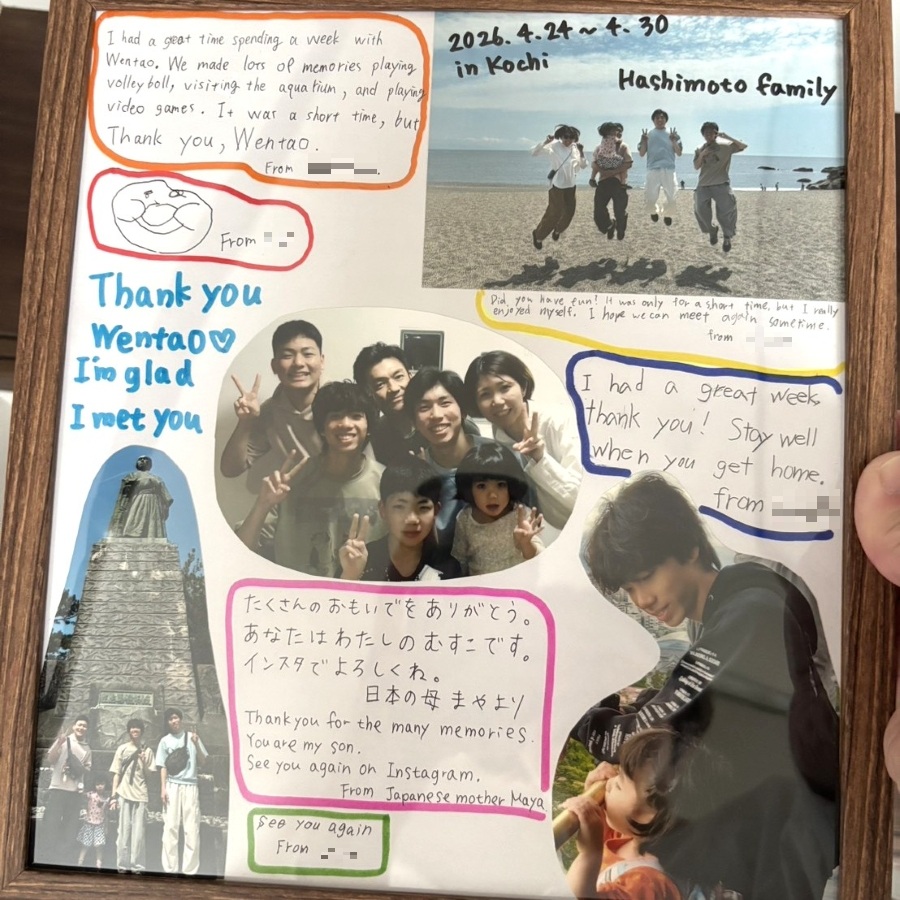 I had a great time spending a week with
Wentao. We made lots of memories playing
volleyboll, visiting the aquatium, and playing
video games. It was a short time, but
Thank you, Wentao.
From
From
Thank you
Wentao♡
I'm glad
I met you
2026.4.24~4.30
in Kochi
Hashimoto family
Did you have fun! It was only for a short time, but I really
enjoyed myself. I hope we can meet again sometime.
from
I had a great week,
thank you! Stay well
when you get home.
from
たくさんのおもいでをありがとう。
あなたはわたしのむすこです。
インスタでよろしくね。
日本の母まやより
Thank you for the many memories.
You are my son.
See you again on Instagram.
From Japanese mother Maya
See you again
From